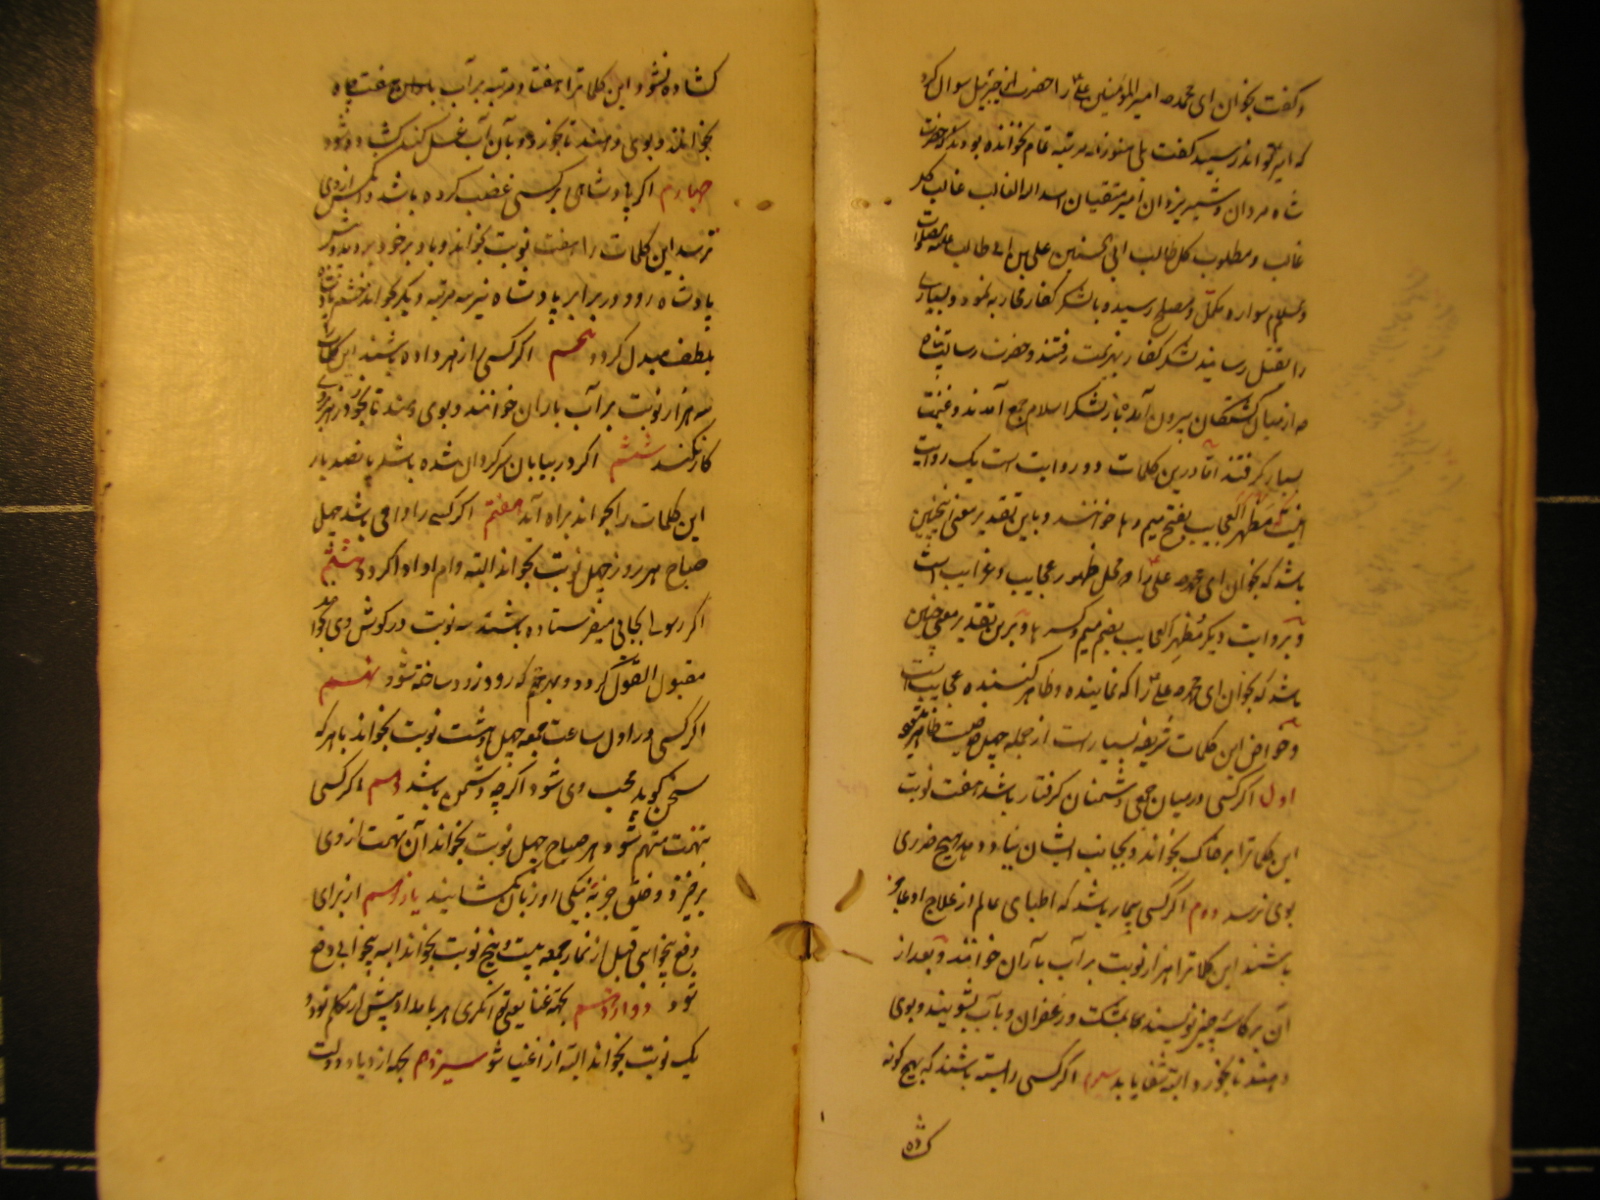 و گفت بخوان ای محمد ص امیر المؤمنین علی را حضرت از جبرئیل سوال کرد
که امیر رسید گفت بلی هنوز مرتبه تمام نخوانده بودند که حضرت
شاه مردان و شیر یزدان امیر متقیان اسد الله الغالب غالب کل
غالب و مطلوب کل طالب ابی الحسنین علی بن ابی طالب علیه الصلوات
و السلام سواره مکمل و مصلح رسیده و با لشکر کفار محاربه نمود و بسیاری
را بقتل رسانیدند لشکر کفار بهزیمت رفتند و حضرت رسالت پناه
ص از میان کشتکان بیرون آمده باز لشکر اسلام جمع آمدند و غنیمت
بسیار گرفتند اما درین کلمات دو روایت است یک روایت
اینست مَظهَر العجایب بفتح میم و ها خوانند و باین تقدیر معنی اینچنین
باشد که بخوان ای محمد ص علی را که محل ظهور عجایب و غرایب است
و بروایت دیگر مُظهِر العجایب بضم میم و کسر ها و برین تقدیر معنی چنین
باشد که بخوان ای محمد ص علی را که نماینده و ظاهر کننده عجایب است
و خواص این کلمات شریفه بسیار است از جمله چهل خاصیت ظاهر
اول اگر کسی در میان جمعی دشمنان گرفتار باشد هفت نوبت
این کلماترا بر خاک بخواند و بجانب ایشان بپاشد هیچ ضرری
بوی نرسد دوم اگر کسی بیمار باشد که اطبای عالم از علاج او عاجز
باشند این کلماترا هزار نوبت بر آب باران خوانند و بعد از
آن بر کاسه چینی نویسند بمشک و زعفران و بآب بشویند و بوی
دهند تا بخورد البته شفا یابد سیم اگر کسی را بسته باشند که بهیچ گونه
کشاده
کشاده نشود این کلماترا هفتاد مرتبه بر آب هفت چاه
بخوانند و بوی دهند تا بخورد و بآن آب غسل کند کشاده شود
چهارم اگر پادشاهی بر کسی غضب کرده باشد و آنکس از وی
ترسد این کلمات را هفت نوبت بخواند و باد بر خود دمد و پیش
پادشاه رود و در برابر پادشاه نیز سه مرتبه دیگر بخواند خشم پادشاه
بلطف مبدل گردد پنجم اگر کسی را زهر داده باشند این کلمات را
سه هزار نوبت بر آب باران خوانند و بوی دهند تا بخورد زهر بروی
کار نکند ششم اگر در بیابان سرگردان شده باشد پانصد بار
این کلمات را بخواند براه آید هفتم اگر کسی را وامی باشد چهل
صباح هر روز چهل نوبت بخواند البته وام او ادا گردد هشتم
اگر رسولی بجائی میفرستاده باشند سه نوبت در گوش وی بخواند
مقبول القول گردد و بهر مهم که رود زود ساخته شود نهم
اگر کسی در اول ساعت جمعه چهل و هشت نوبت بخواند با هر که
سخن گوید محب وی شود اگرچه دشمن باشد دهم اگر کسی
بتهمت متهم شود هر صباح چهل نوبت بخواند آن تهمت از وی
برخیزد و خلق جز به نیکی او زبان نکشایند یازدهم از برای
دفع بیخوابی قبل از نماز جمعه بیست و پنج نوبت بخواند البته بیخوابی دفع
شود دوازدهم بجهة غنا یعنی توانگری هر بامداد پیش از تکلم
یک نوبت بخواند البته از اغنیا شود سیزدهم بجهة ازدیاد دولت